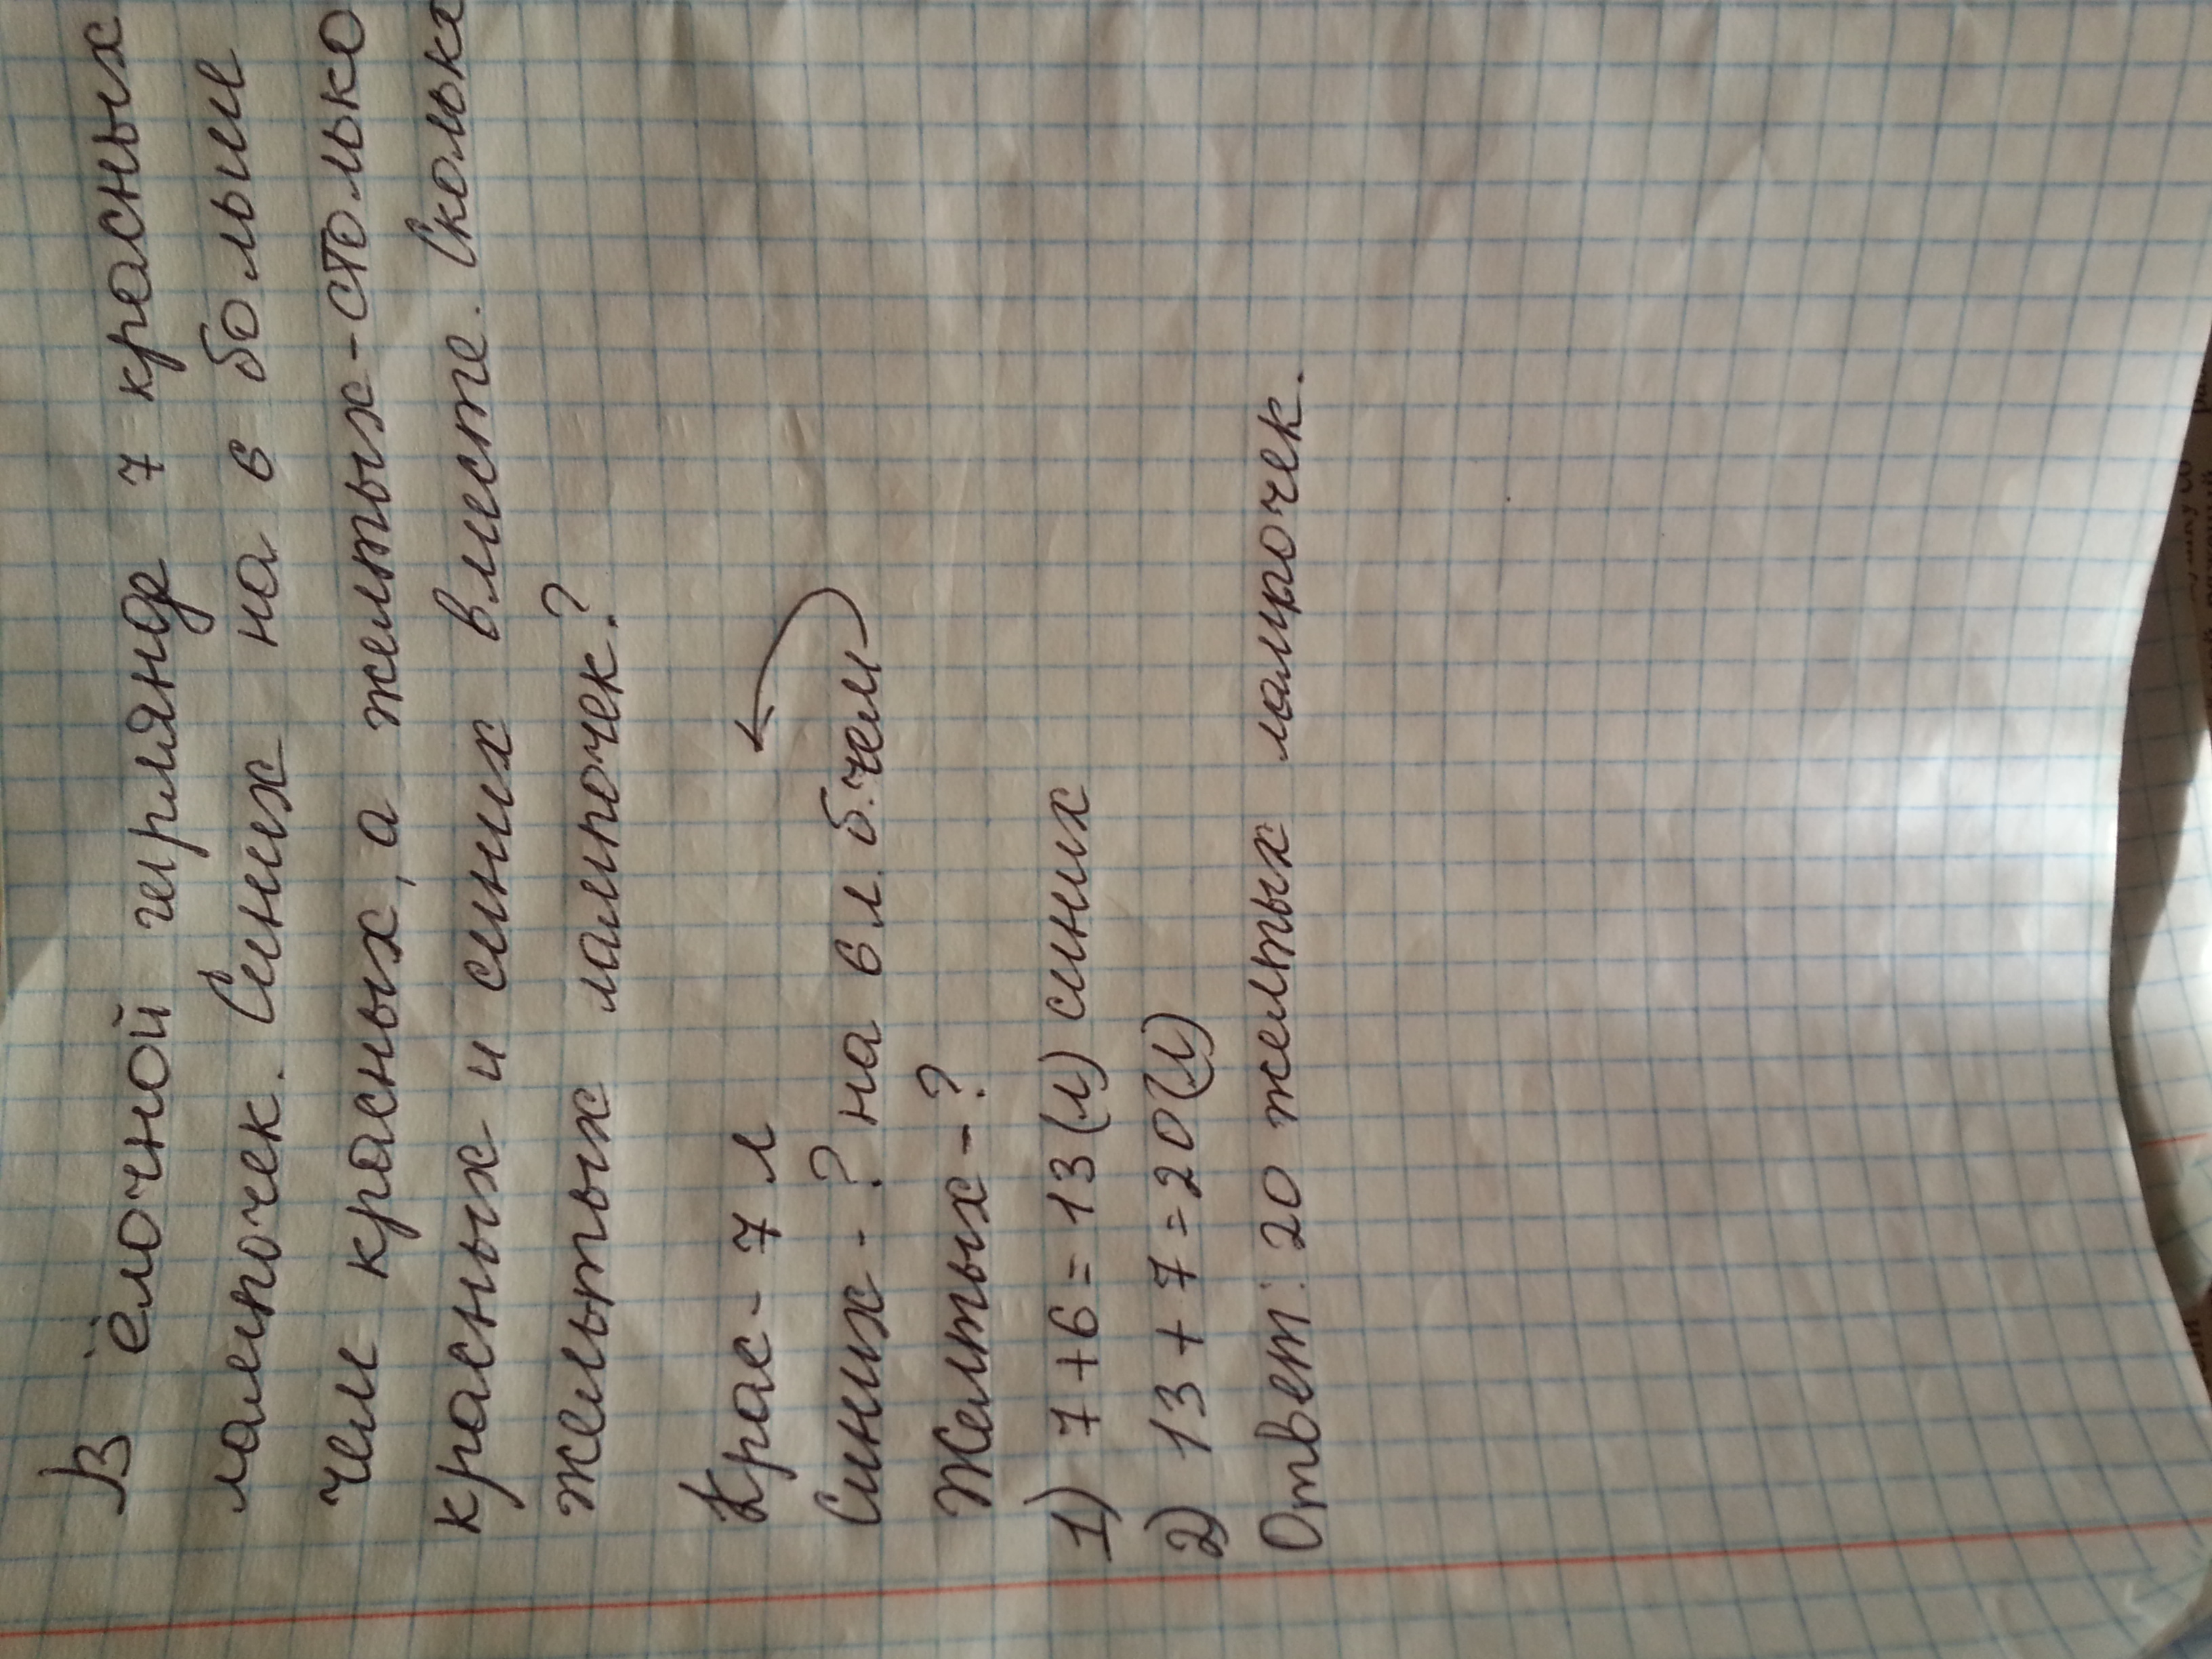 В ёлочной гирлянде 7 красных
лампочек. Синих на 6 больше
чем красных, а желтых - столько
красных и синих вместе. Сколько
жельтых лампочек?
Крас - 7 л
Синих - ? на 6 л. б. чем
Желтых - ?
1) 7 + 6 = 13 (л) синих
2) 13 + 7 = 20 (л)
Ответ: 20 желтых лампочек.